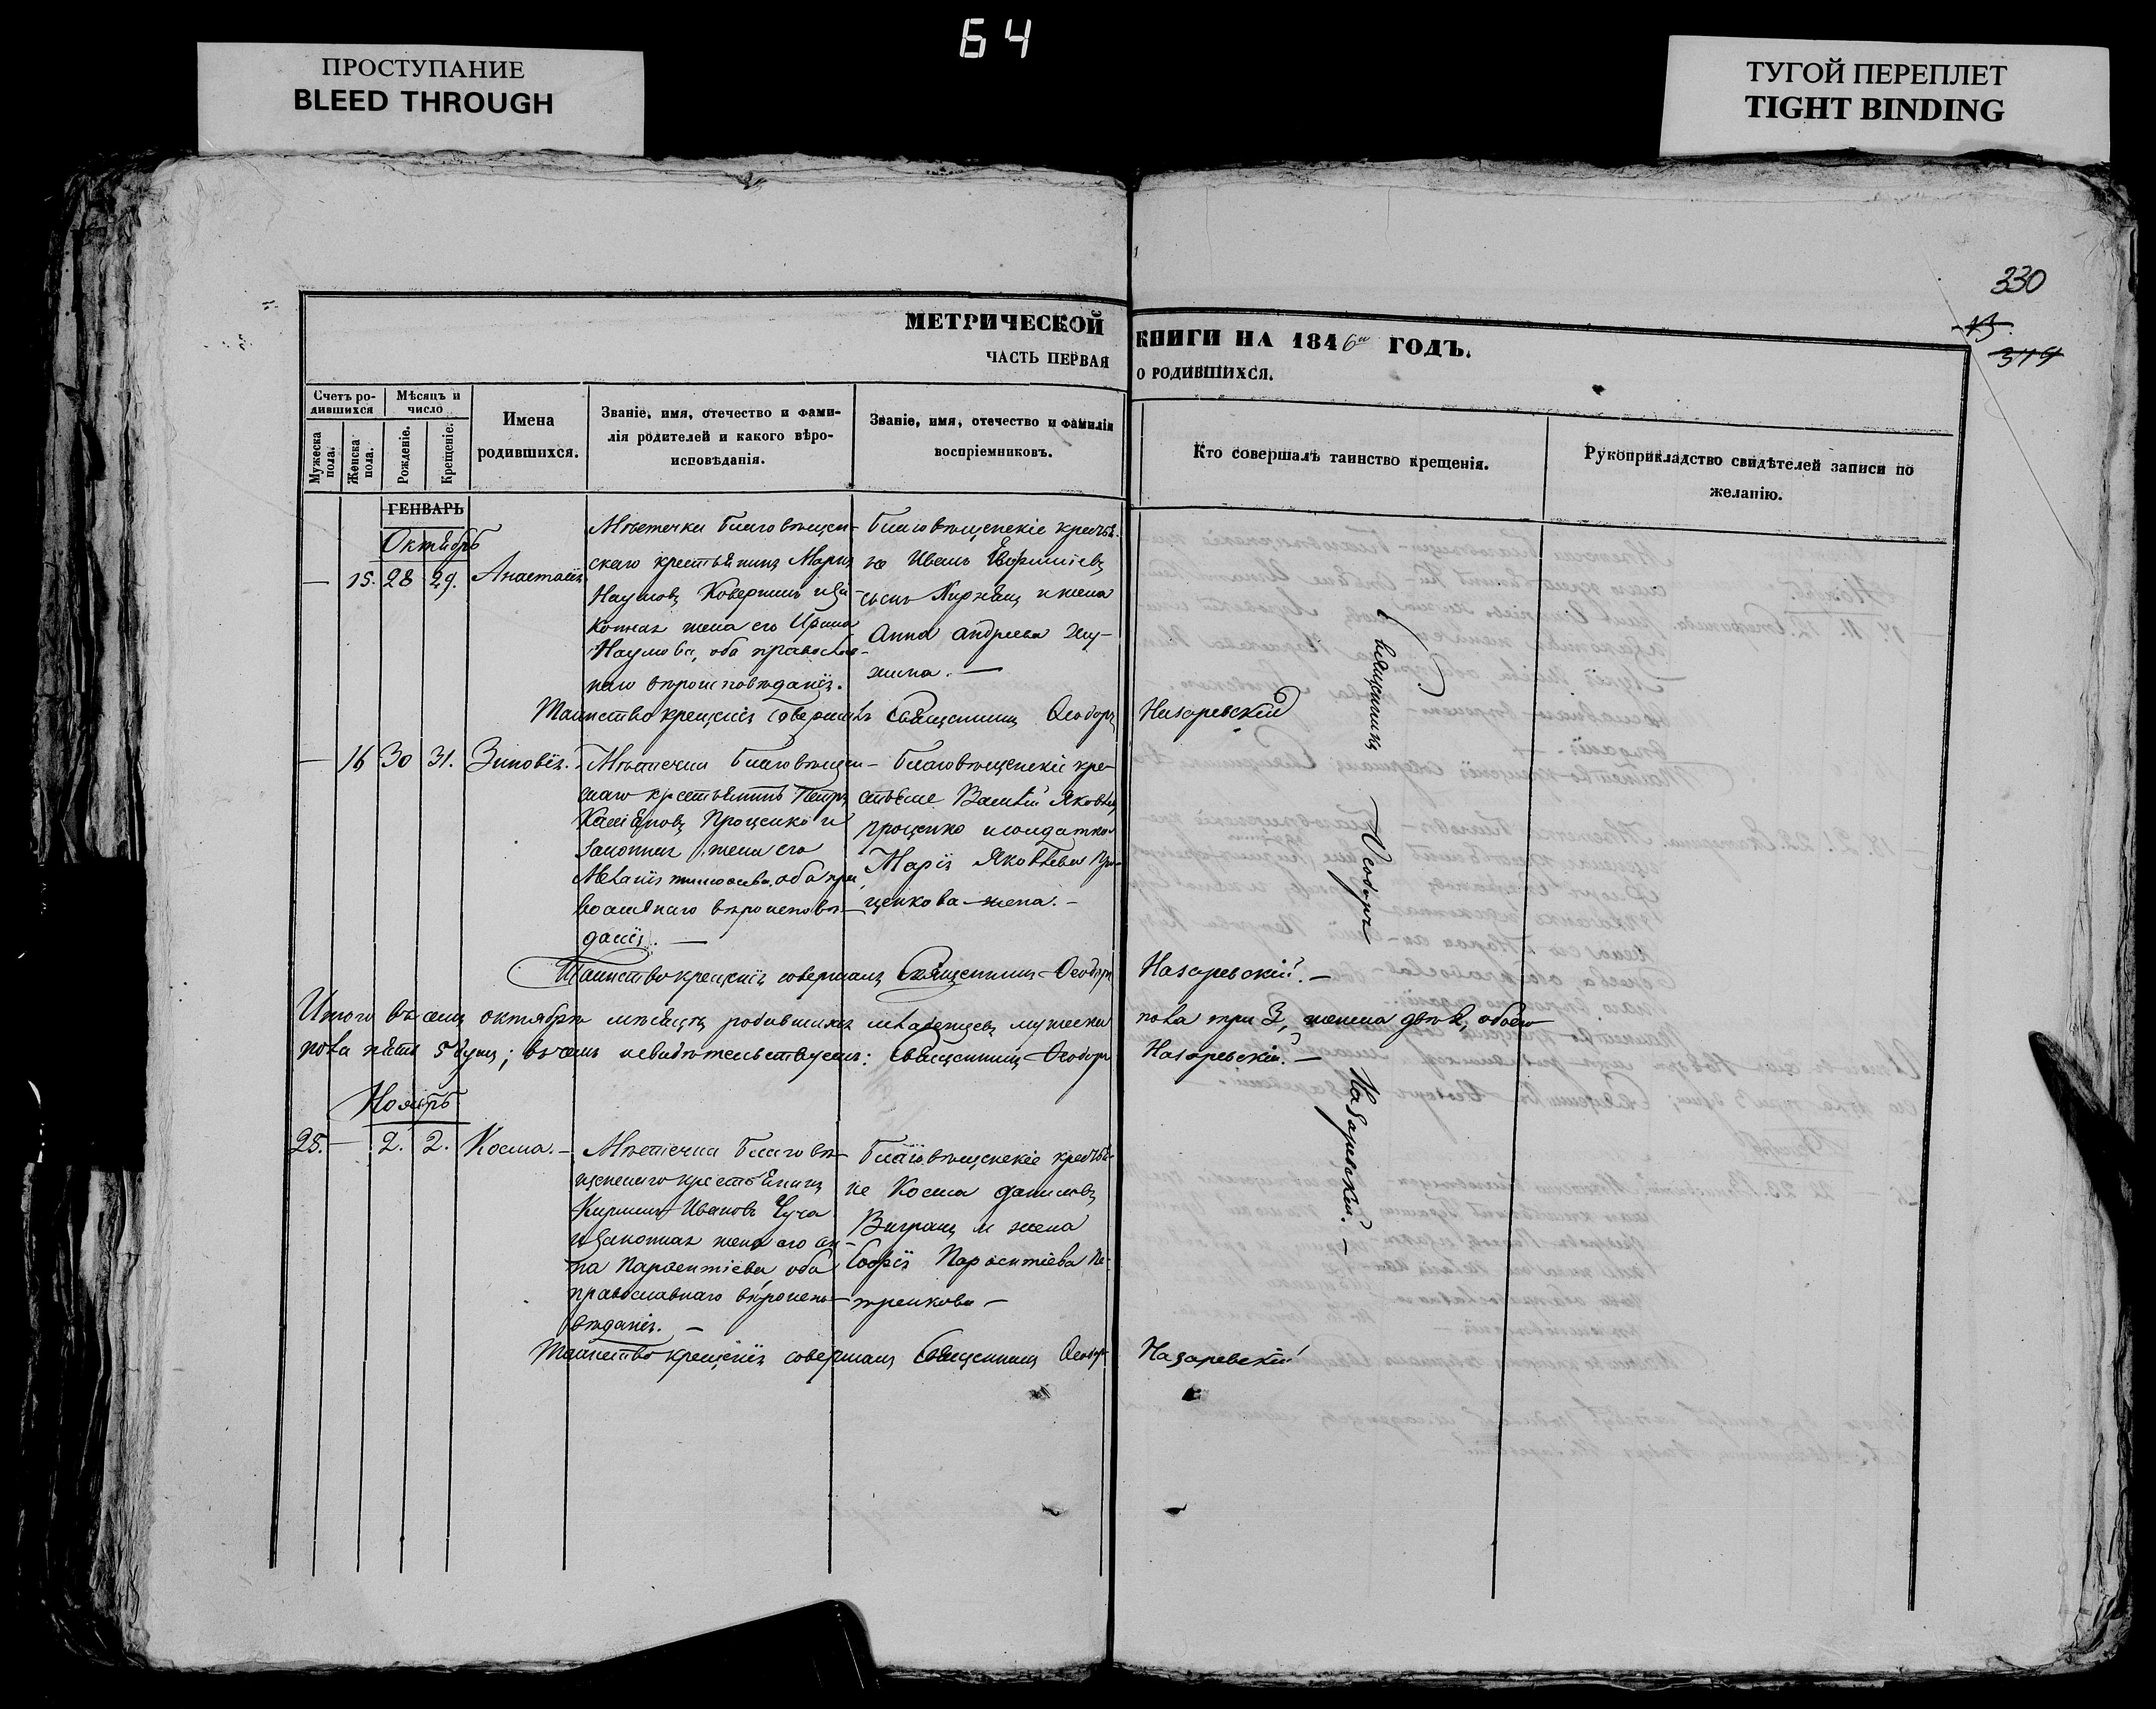 64
ПРОСТУПАНИЕ
BLEED THROUGH
ТУГОЙ ПЕРЕПЛЕТ
TIGHT BINDING
330
13
319
МЕТРИЧЕСКОЙ КНИГИ НА 1846 ГОДЪ.
ЧАСТЬ ПЕРВАЯ О РОДИВШИХСЯ.
Счетъ ро-
дившихся
Мужеска пола.
Женска пола.
Мѣсяцъ и
число
Рожденіе.
Крещеніе.
Имена
родившихся.
Званіе, имя, отечество и фами-
лія родителей и какого вѣро-
исповѣданія.
Званіе, имя, отечество и фамилія
воспріемниковъ.
Кто совершалъ таинство крещенія.
Рукоприкладство свидѣтелей записи по
желанію.
ГЕНВАРЬ
Октябрь
— 15. 28 29. Анастасія
Мѣстечка Благовѣщен-
скаго крестьянинъ
Наумовъ и за-
конная жена его Ирина
Наумова, оба православ-
наго вѣроисповѣданія.
Благовѣщенскіе крестья-
не Иванъ
сынъ и жена
Анна Андреева
жина. —
Таинство крещенія совершалъ Священникъ Ѳеодоръ Назаревскій
— 16 30 31. Зиновія.
Мѣстечка Благовѣщен-
скаго крестьянинъ Петръ
Проценко и
законная жена его
Меланія оба пра-
вославнаго вѣроисповѣ-
данія. —
Благовѣщенскіе кре-
стьяне Василій Яковлевъ
Проценко и солдатка
Марія Яковлева Про-
ценкова жена. —
Таинство крещенія совершалъ Священникъ Ѳеодоръ Назаревскій. —
Итого въ семъ октябрѣ мѣсяцѣ родившихся младенцевъ мужеска пола три 3, женска двѣ 2, обоего
пола пять 5 душъ; въ чемъ и свидѣтельствуемъ: Священникъ Ѳеодоръ Назаревскій. —
Ноябрь
25. — 2. 2. Косма. —
Мѣстечка Благовѣ-
щенскаго крестьянинъ
Кириллъ Ивановъ
и законная жена его Ан-
на Парфентіева, оба
православнаго вѣроиспо-
вѣданія. —
Благовѣщенскіе крестья-
не Косма Даниловъ
и жена
Софія Парфентіева Пе-
тренкова —
Таинство крещенія совершалъ Священникъ Ѳеодоръ Назаревскій
Священникъ Ѳеодоръ Назаревскій. —